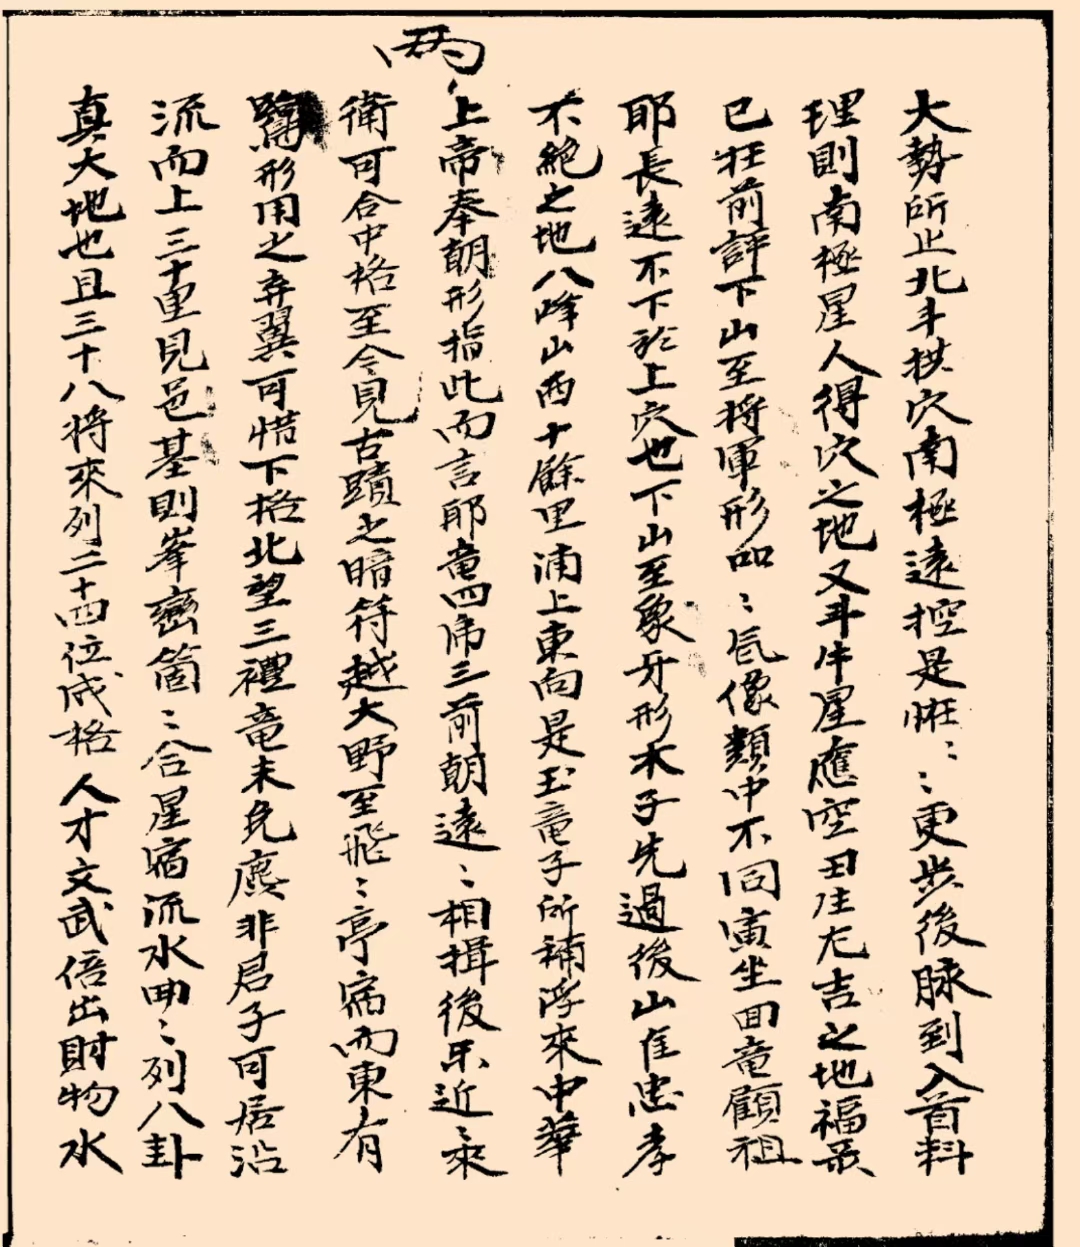 大勢所止北斗拱穴南極遠控是晽〻〻更步後脉到入首料
理則南極星人得穴之地又斗牛星應空丑生尤吉之地福眾
已在前評下山至將軍形如〻氣像類中不同寅坐回竜顧祖
耶長遠不下於上穴也下山至象牙形木子先過後山隹忠孝
不絶之地八峰山西十餘里浦上東向是玉竜子所補浮來中華
兩
上帝奉朝形指此而言耶竜四席三前朝遠〻相揖後樂近〻來
衛可合中格至今見古蹟之暗符越大野至飛〻亭宿而東有
形用之弃翼可惜下格北望三禮竜末免麃非君子可居沿
流而上三十里見邑基則峯巒箇〻合星宿流水曲〻列八卦
真大地也且三十八將來列二十四位成格人才文武倍出財物水